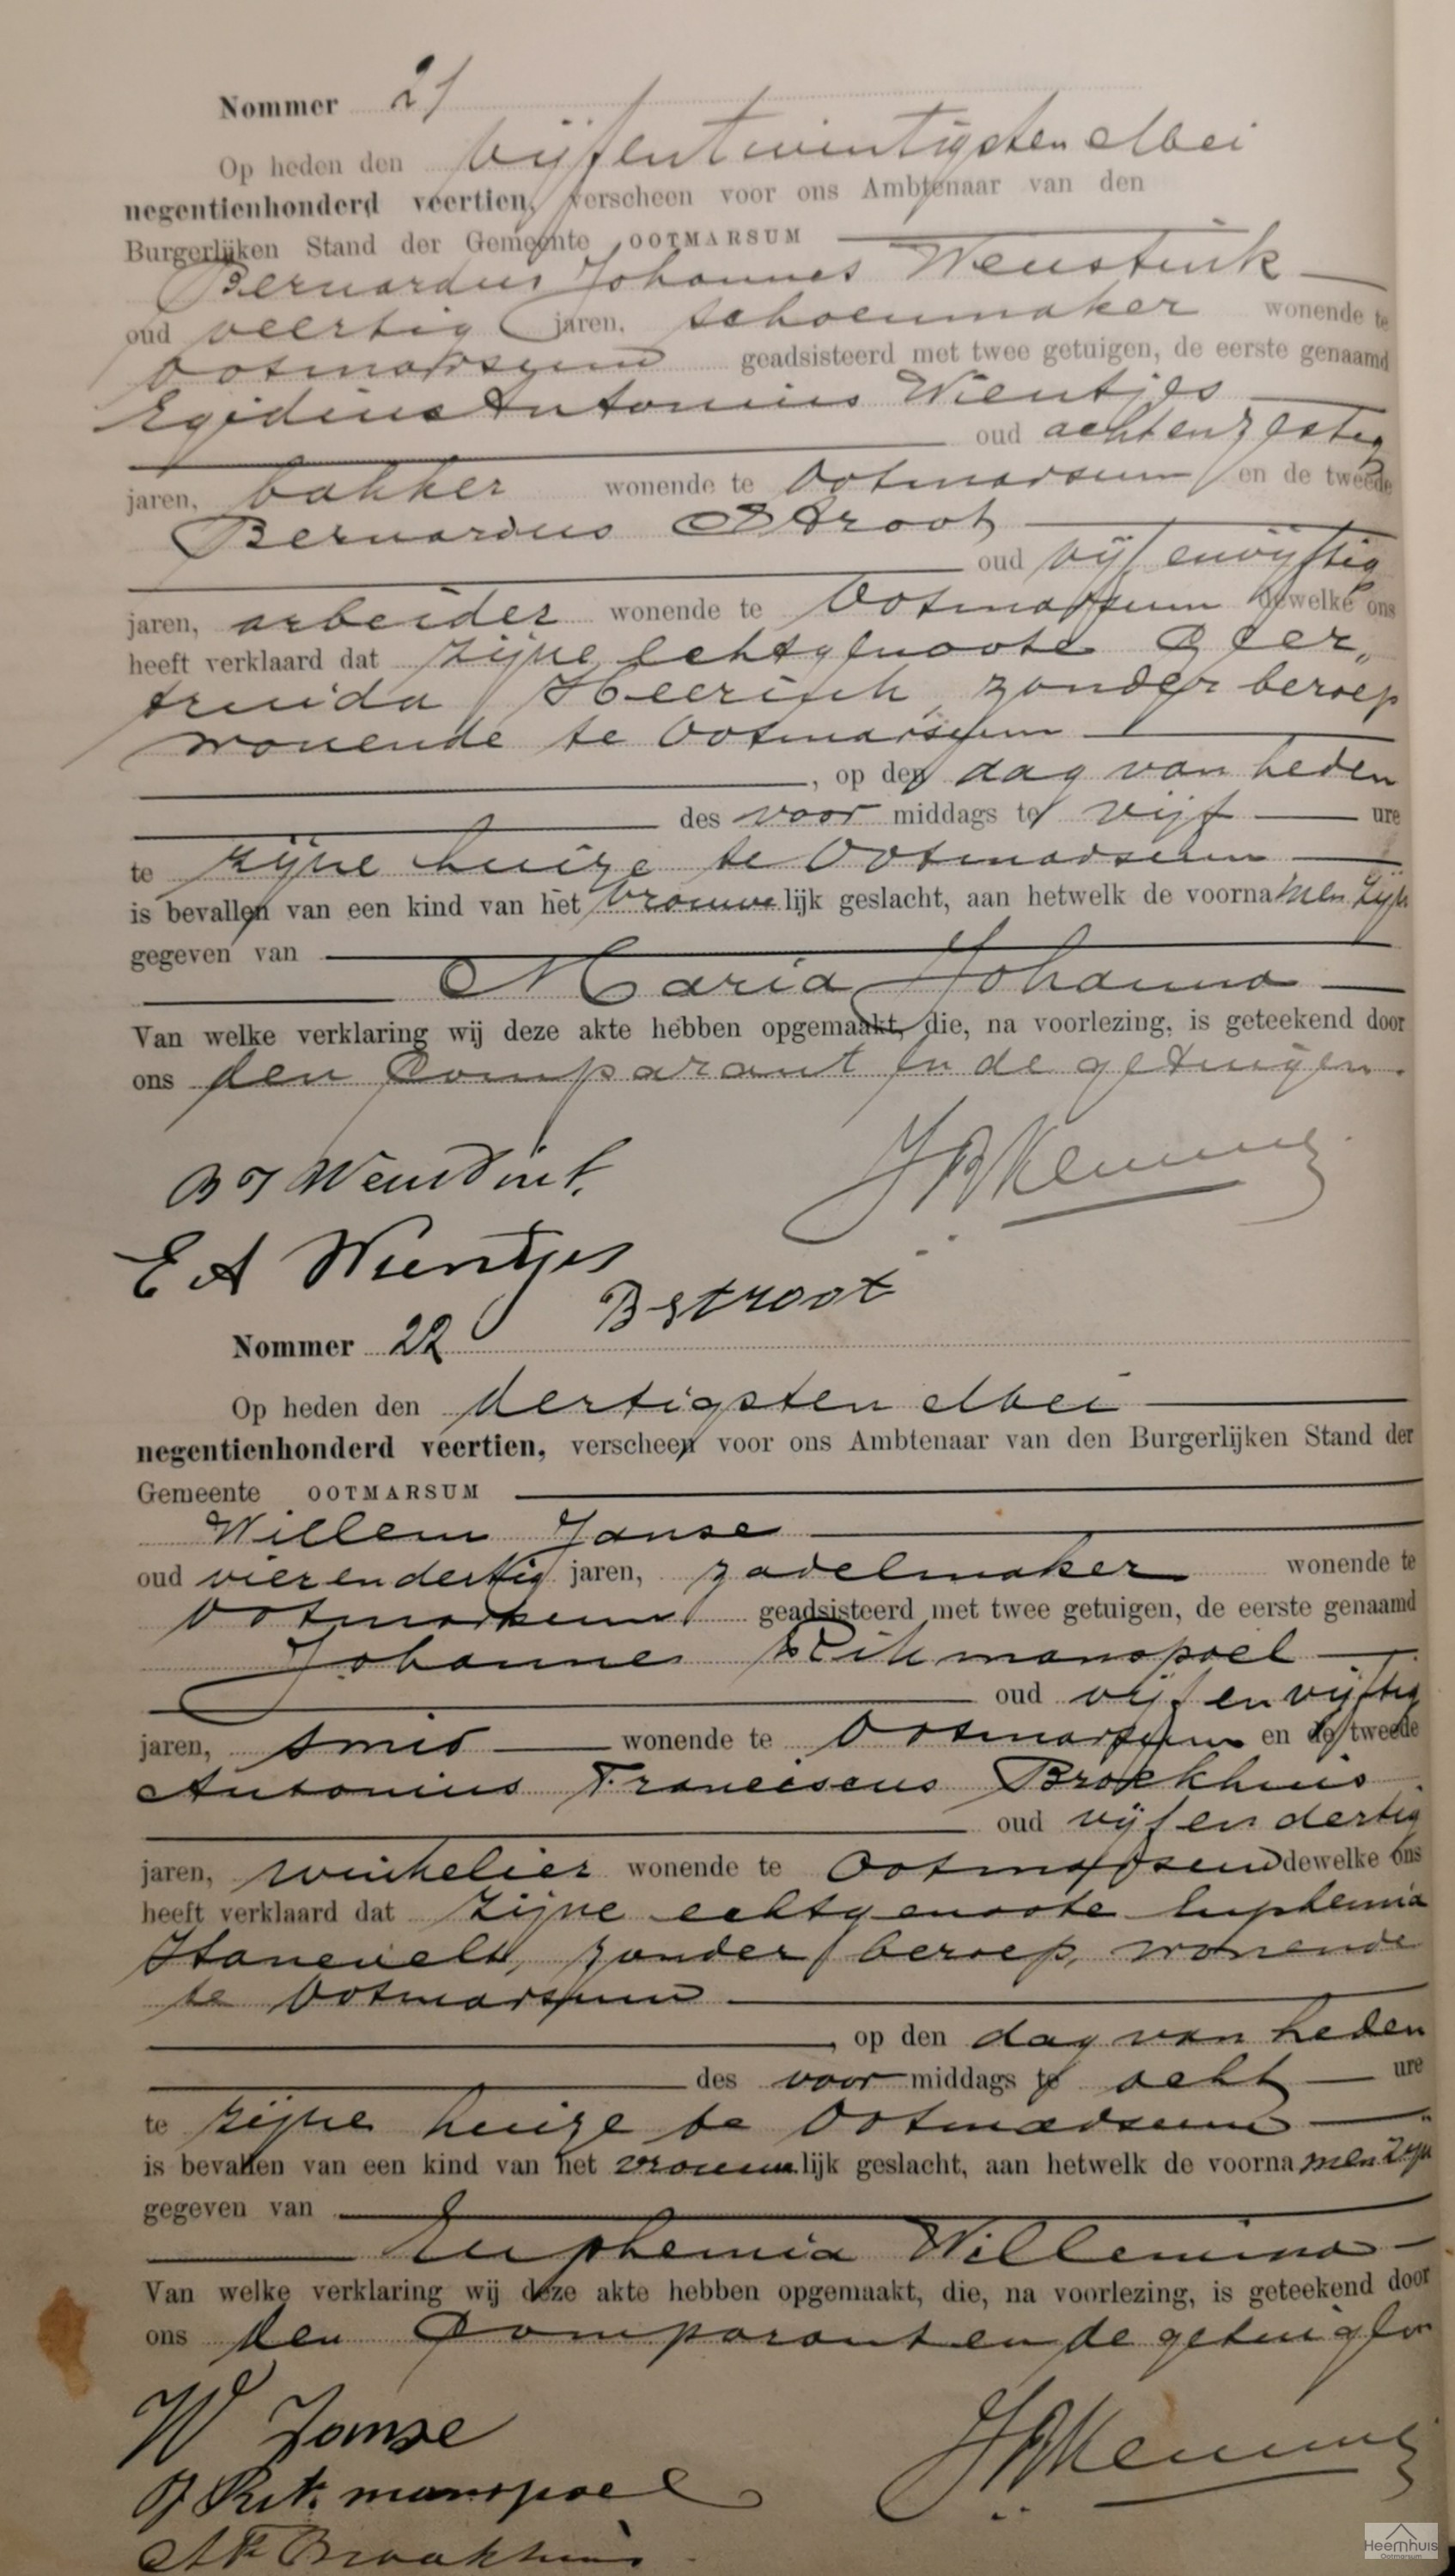 Nommer 21
Op heden den vijfentwintigsten Mei
negentienhonderd veertien, verscheen voor ons Ambtenaar van den
Burgerlijken Stand der Gemeente OOTMARSUM
Bernardus Johannes Weustink
oud veertig jaren, schoenmaker wonende te
Ootmarsum geadsisteerd met twee getuigen, de eerste genaamd
Egidius Antonius Wientjes
oud achtenzestig
jaren, bakker wonende te Ootmarsum en de tweede
Bernardus Stroot
oud vijfenvijftig
jaren, arbeider wonende te Ootmarsum dewelke ons
heeft verklaard dat zijne echtgenoote Geer„
truida Heerink, zonder beroep
wonende te Ootmarsum
, op den dag van heden
des voor middags te vijf ure
te zijne huize te Ootmarsum
is bevallen van een kind van het vrouwelijk geslacht, aan hetwelk de voornamen zijn
gegeven van
Maria Johanna
Van welke verklaring wij deze akte hebben opgemaakt, die, na voorlezing, is geteekend door
ons den Comparant en de getuigen.
B J Weustink.
E A Wientjes
B Stroot
Nommer 22
Op heden den dertigsten Mei
negentienhonderd veertien, verscheen voor ons Ambtenaar van den Burgerlijken Stand der
Gemeente OOTMARSUM
Willem Janse
oud vierendertig jaren, zadelmaker wonende te
Ootmarsum geadsisteerd met twee getuigen, de eerste genaamd
Johannes Rikmanspoel
oud vijfenvijftig
jaren, smid wonende te Ootmarsum en de tweede
Antonius Franciscus Brookhuis
oud vijfendertig
jaren, winkelier wonende te Ootmarsum dewelke ons
heeft verklaard dat zijne echtgenoote Euphemia
Hanevelt, zonder beroep, wonende
te Ootmarsum
, op den dag van heden
des voor middags te acht ure
te zijne huize te Ootmarsum
is bevallen van een kind van het vrouwelijk geslacht, aan hetwelk de voornamen zijn
gegeven van
Euphemia Willemina
Van welke verklaring wij deze akte hebben opgemaakt, die, na voorlezing, is geteekend door
ons den Comparant en de getuigen
W Janse
J Rikmanspoel
A F Brookhuis.
Heemhuis
Ootmarsum